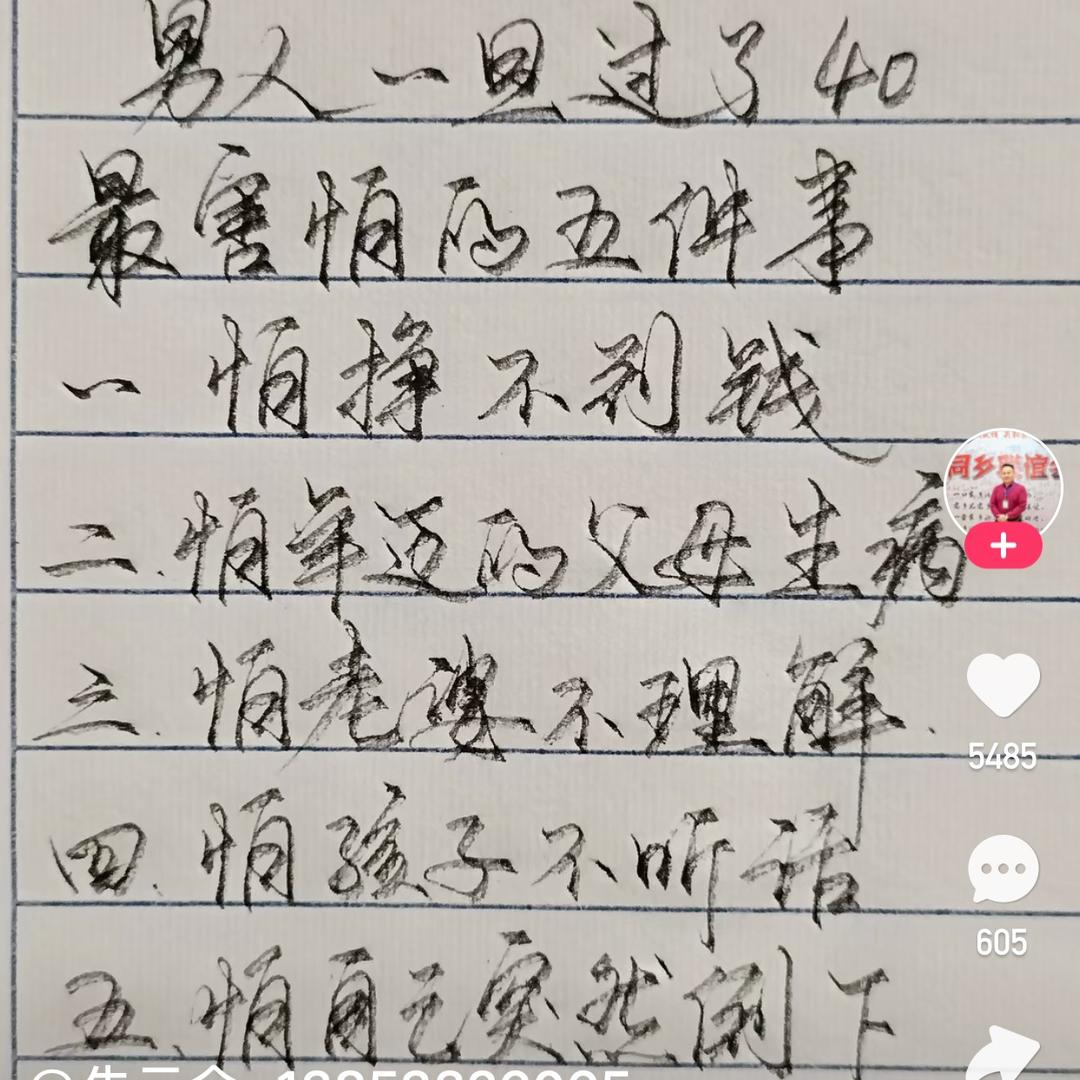 男人一旦过了40
最害怕的五件事
一 怕挣不到钱
二.怕年迈的父母生病
三.怕老婆不理解.
四.怕孩子不听话
五、怕自己突然倒下
同乡联谊
5485
605